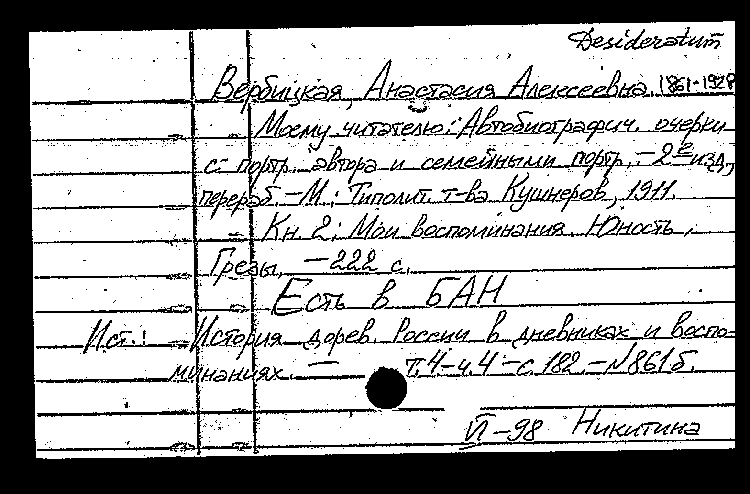 Desideratum
Вербицкая, Анастасия Алексеевна, 1861-1928
Моему читателю: Автобиографич. очерки
с портр. автора и семейными портр. - 2е изд.,
перераб. - М.: Типолит. т-ва Кушнеров, 1911.
Кн. 2: Мои воспоминания. Юность.
Грезы. - 222 с.
Есть в БАН
Ист.: История дорев. России в дневниках и воспо-
минаниях. - т.4 - ч.4 - с.182. - №861б.
VI - 98 Никитина